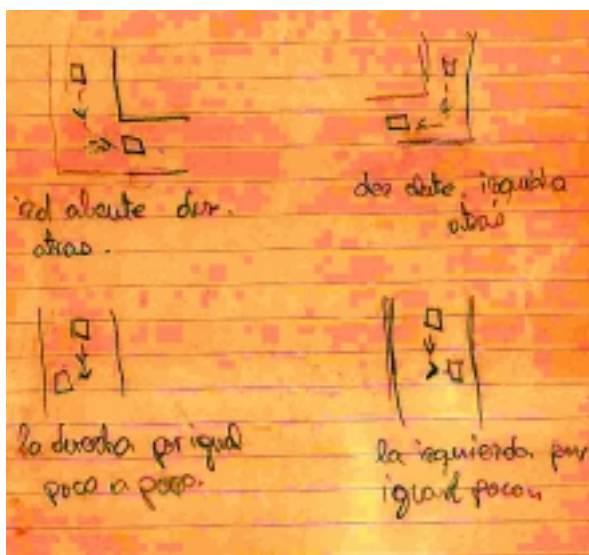 izd alante der.
atras.
der alate. izquieda
atrás
la derecha por igual
poco a poco.
la izquierda por
igual poco